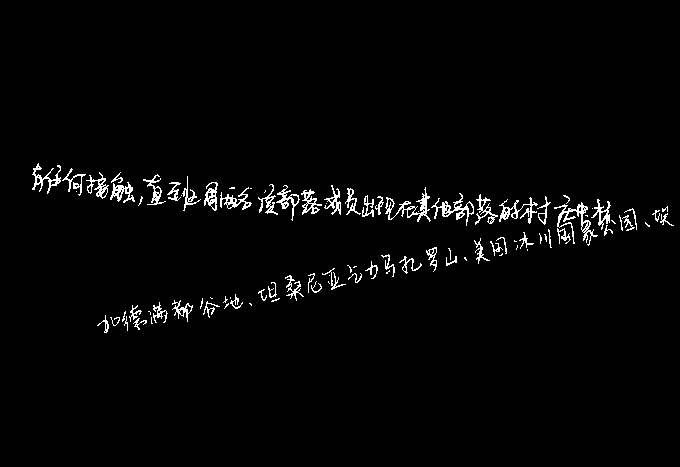 有任何接触,直到上周两名该部落成员出现在其他部落的村庄中
加德满都谷地、坦桑尼亚乞力马扎罗山、美国冰川国家公园、埃